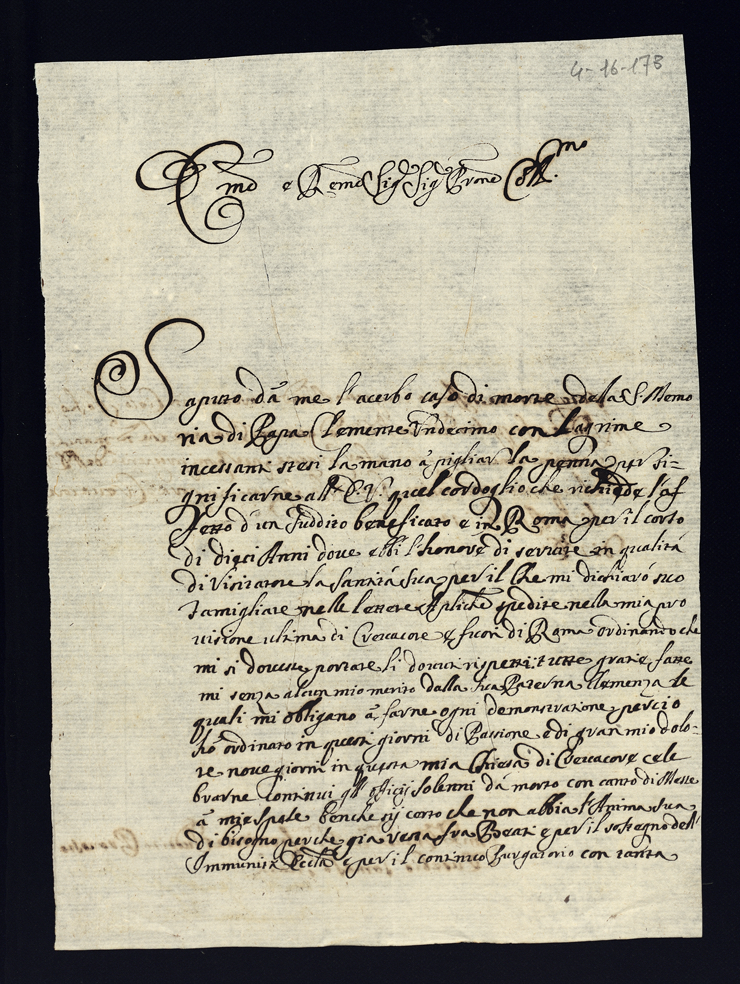 4-16-173
Em̃o e Rev.mo Sig.r Sig.r Prone Coll.mo
Saputo dà me l'acerbo caso di morte della S. Memo
ria di Papa Clemente Undecimo con lagrime
incessanti stesi la mano à pigliar la penna per si=
gnificarne all' E. V. quel cordoglio che richiede l'af
fetto d'un suddito beneficato e in Roma per il corso
di dieci Anni dove ebbi l'honore di servire in qualità
di Visitatore la Santità sua per il che mi dichiarò suo
famigliare nelle lettere Apliche spedite nella mia pro
visione ultima di Crevacore e fuori di Roma ordinando che
mi si dovesse portare li dovuti rispetti: tutte gratie fatte
mi senza alcun mio merito dalla sua Paterna Clemenza le
quali mi obligano à farne ogni demonstratione perciò
hò ordinato in questi giorni di Passione e di gran mio dolo-
re nove giorni in questa mia Chiesa di Crevacore cele
brarne continui gli officij solenni dà morto con canto di Messe
à mie spese benche sij certo che non abbia l'Anima sua
di bisogno perche già resta sua Beat.e e per il sostegno dell'
Immunità Eccl.a e per il continuo Purgatorio con tanta